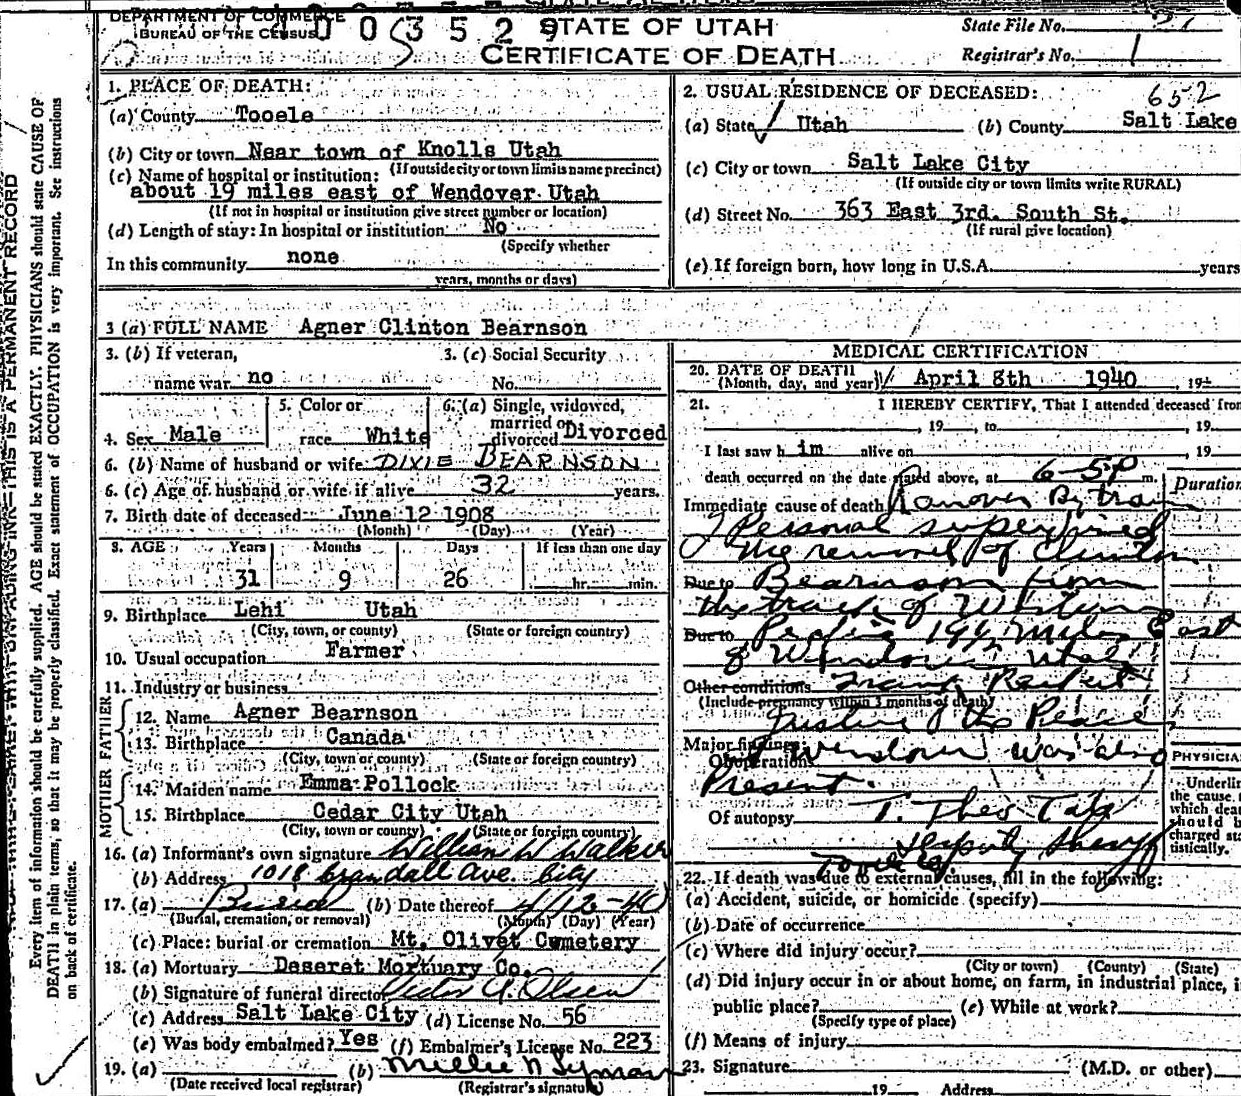 DEPARTMENT OF COMMERCE
BUREAU OF THE CENSUS
0 3 5 2 9
STATE OF UTAH
CERTIFICATE OF DEATH
State File No.
Registrar's No. 1
THIS IS A PERMANENT RECORD
Every item of information should be carefully supplied. AGE should be stated EXACTLY. PHYSICIANS should state CAUSE OF
DEATH in plain terms, so that it may be properly classified. Exact statement of OCCUPATION is very important. See instructions
on back of certificate.
1. PLACE OF DEATH:
(a) County Tooele
(b) City or town Near town of Knolls Utah
(If outside city or town limits name precinct)
(c) Name of hospital or institution:
about 19 miles east of Wendover Utah
(If not in hospital or institution give street number or location)
(d) Length of stay: In hospital or institution No
(Specify whether
In this community none
years, months or days)
2. USUAL RESIDENCE OF DECEASED:
652
(a) State Utah (b) County Salt Lake
(c) City or town Salt Lake City
(If outside city or town limits write RURAL)
(d) Street No. 363 East 3rd. South St.
(If rural give location)
(e) If foreign born, how long in U.S.A. years
3 (a) FULL NAME Agner Clinton Bearnson
3. (b) If veteran,
name war no
3. (c) Social Security
No.
4. Sex Male
5. Color or
race White
6. (a) Single, widowed,
married or
divorced Divorced
6. (b) Name of husband or wife DIXIE BEARNSON
6. (c) Age of husband or wife if alive 32 years.
7. Birth date of deceased June 12 1908
(Month) (Day) (Year)
8. AGE Years Months Days If less than one day
31 9 26 hr. min.
9. Birthplace Lehi Utah
(City, town, or county) (State or foreign country)
10. Usual occupation Farmer
11. Industry or business
FATHER
12. Name Agner Bearnson
13. Birthplace Canada
(City, town or county) (State or foreign country)
MOTHER
14. Maiden name Emma Pollock
15. Birthplace Cedar City Utah
(City, town or county) (State or foreign country)
16. (a) Informant's own signature William W Walker
(b) Address 1018 Crandall Ave. City
17. (a) Burial (b) Date thereof 4/12-40
(Burial, cremation, or removal) (Month) (Day) (Year)
(c) Place: burial or cremation Mt. Olivet Cemetery
18. (a) Mortuary Deseret Mortuary Co.
(b) Signature of funeral director Victor A. Olsen
(c) Address Salt Lake City (d) License No. 56
(e) Was body embalmed? Yes (f) Embalmer's License No. 223
19. (a) (b) Millie N Lyman
(Date received local registrar) (Registrar's signature)
MEDICAL CERTIFICATION
20. DATE OF DEATH
(Month, day, and year) April 8th 1940, 19
21. I HEREBY CERTIFY, That I attended deceased from
, 19 , to , 19
I last saw him alive on , 19
death occurred on the date stated above, at 6-5P m.
Duration
Immediate cause of death Ranover By train
I Personal supervised
the removal of Clinton
Due to Bearnson from
the track of Western
Due to Pacific 19½ Miles East
of Wendover Utah
Other conditions
(Include pregnancy within 3 months of death)
Justice of the Peace
Major findings:
Of operations Wendover was also
Present.
Of autopsy T. Theo
Deputy Sheriff
Tooele
PHYSICIA
Underlin
the cause
which dea
should b
charged sta
tistically.
22. If death was due to external causes, fill in the following:
(a) Accident, suicide, or homicide (specify)
(b) Date of occurrence
(c) Where did injury occur?
(City or town) (County) (State)
(d) Did injury occur in or about home, on farm, in industrial place, i
public place? (e) While at work?
(Specify type of place)
(f) Means of injury
23. Signature (M.D. or other)
19 Address